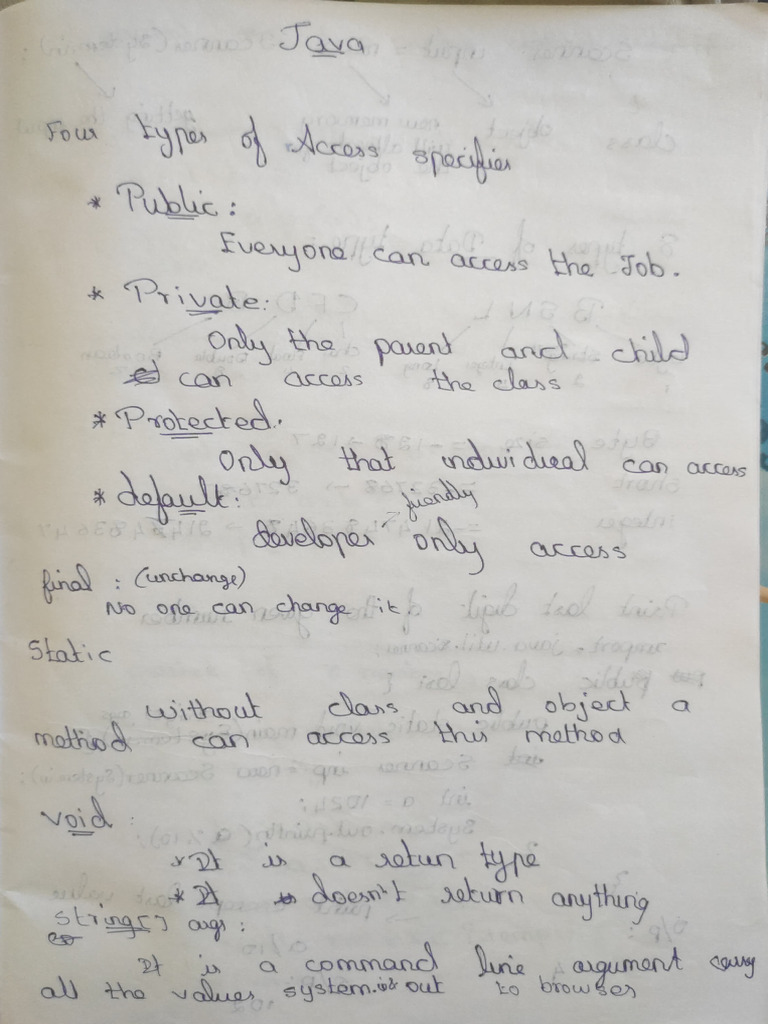 Java
Four types of Access specifier
* Public :
Everyone can access the Job.
* Private:
Only the parent and child
can access the class
* Protected:
Only that individual can access
* default:
friendly
developer only access
final : (unchange)
No one can change it
Static
without class and object a
method can access this method
void :
* It is a retun type
* It doesn't return anything
string[] args :
It is a command line argument carry
all the values system. out to browser